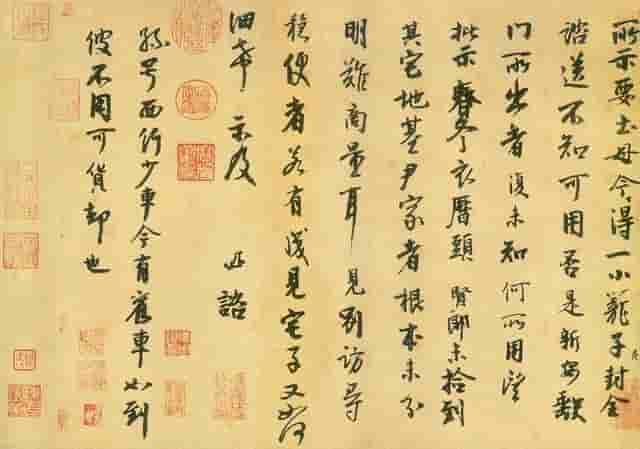 所示要土母今得一小籠子封全
諮送不知可用否是新安缺
門所出者復未知何所用望
批示春冬衣曆頭賢郎未檢到
其宅地基尹家者根本未分
明難商量耳見別訪尋
穩便者若有淺見宅子又如何
細希示及 諮
孫号西行少車今有舊車如到
彼不用可貨却也